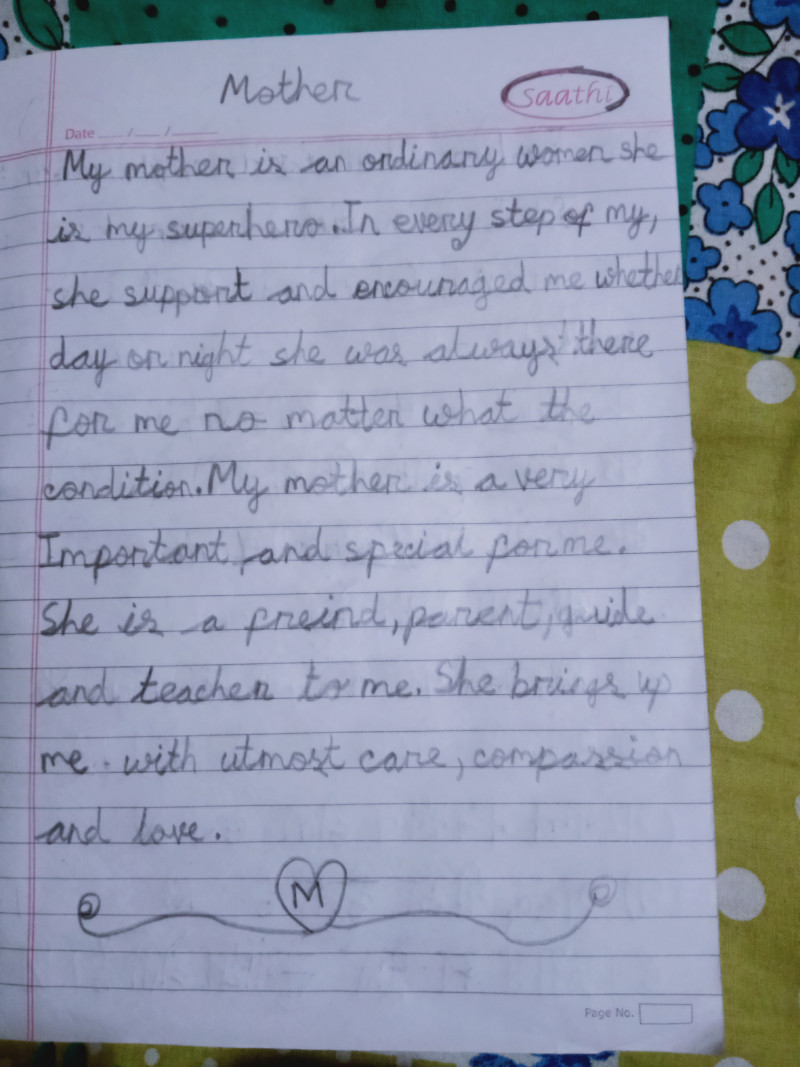 Mother
saathi
Date ___/___/_____
My mother is an ordinary women she
is my superhero. In every step of my,
she support and encouraged me whether
day or night she was always there
for me no matter what the
condition. My mother is a very
Important, and special for me.
She is a freind, parent, guide
and teacher to me. She brings up
me. with utmost care, compassion
and love.
M
Page No.